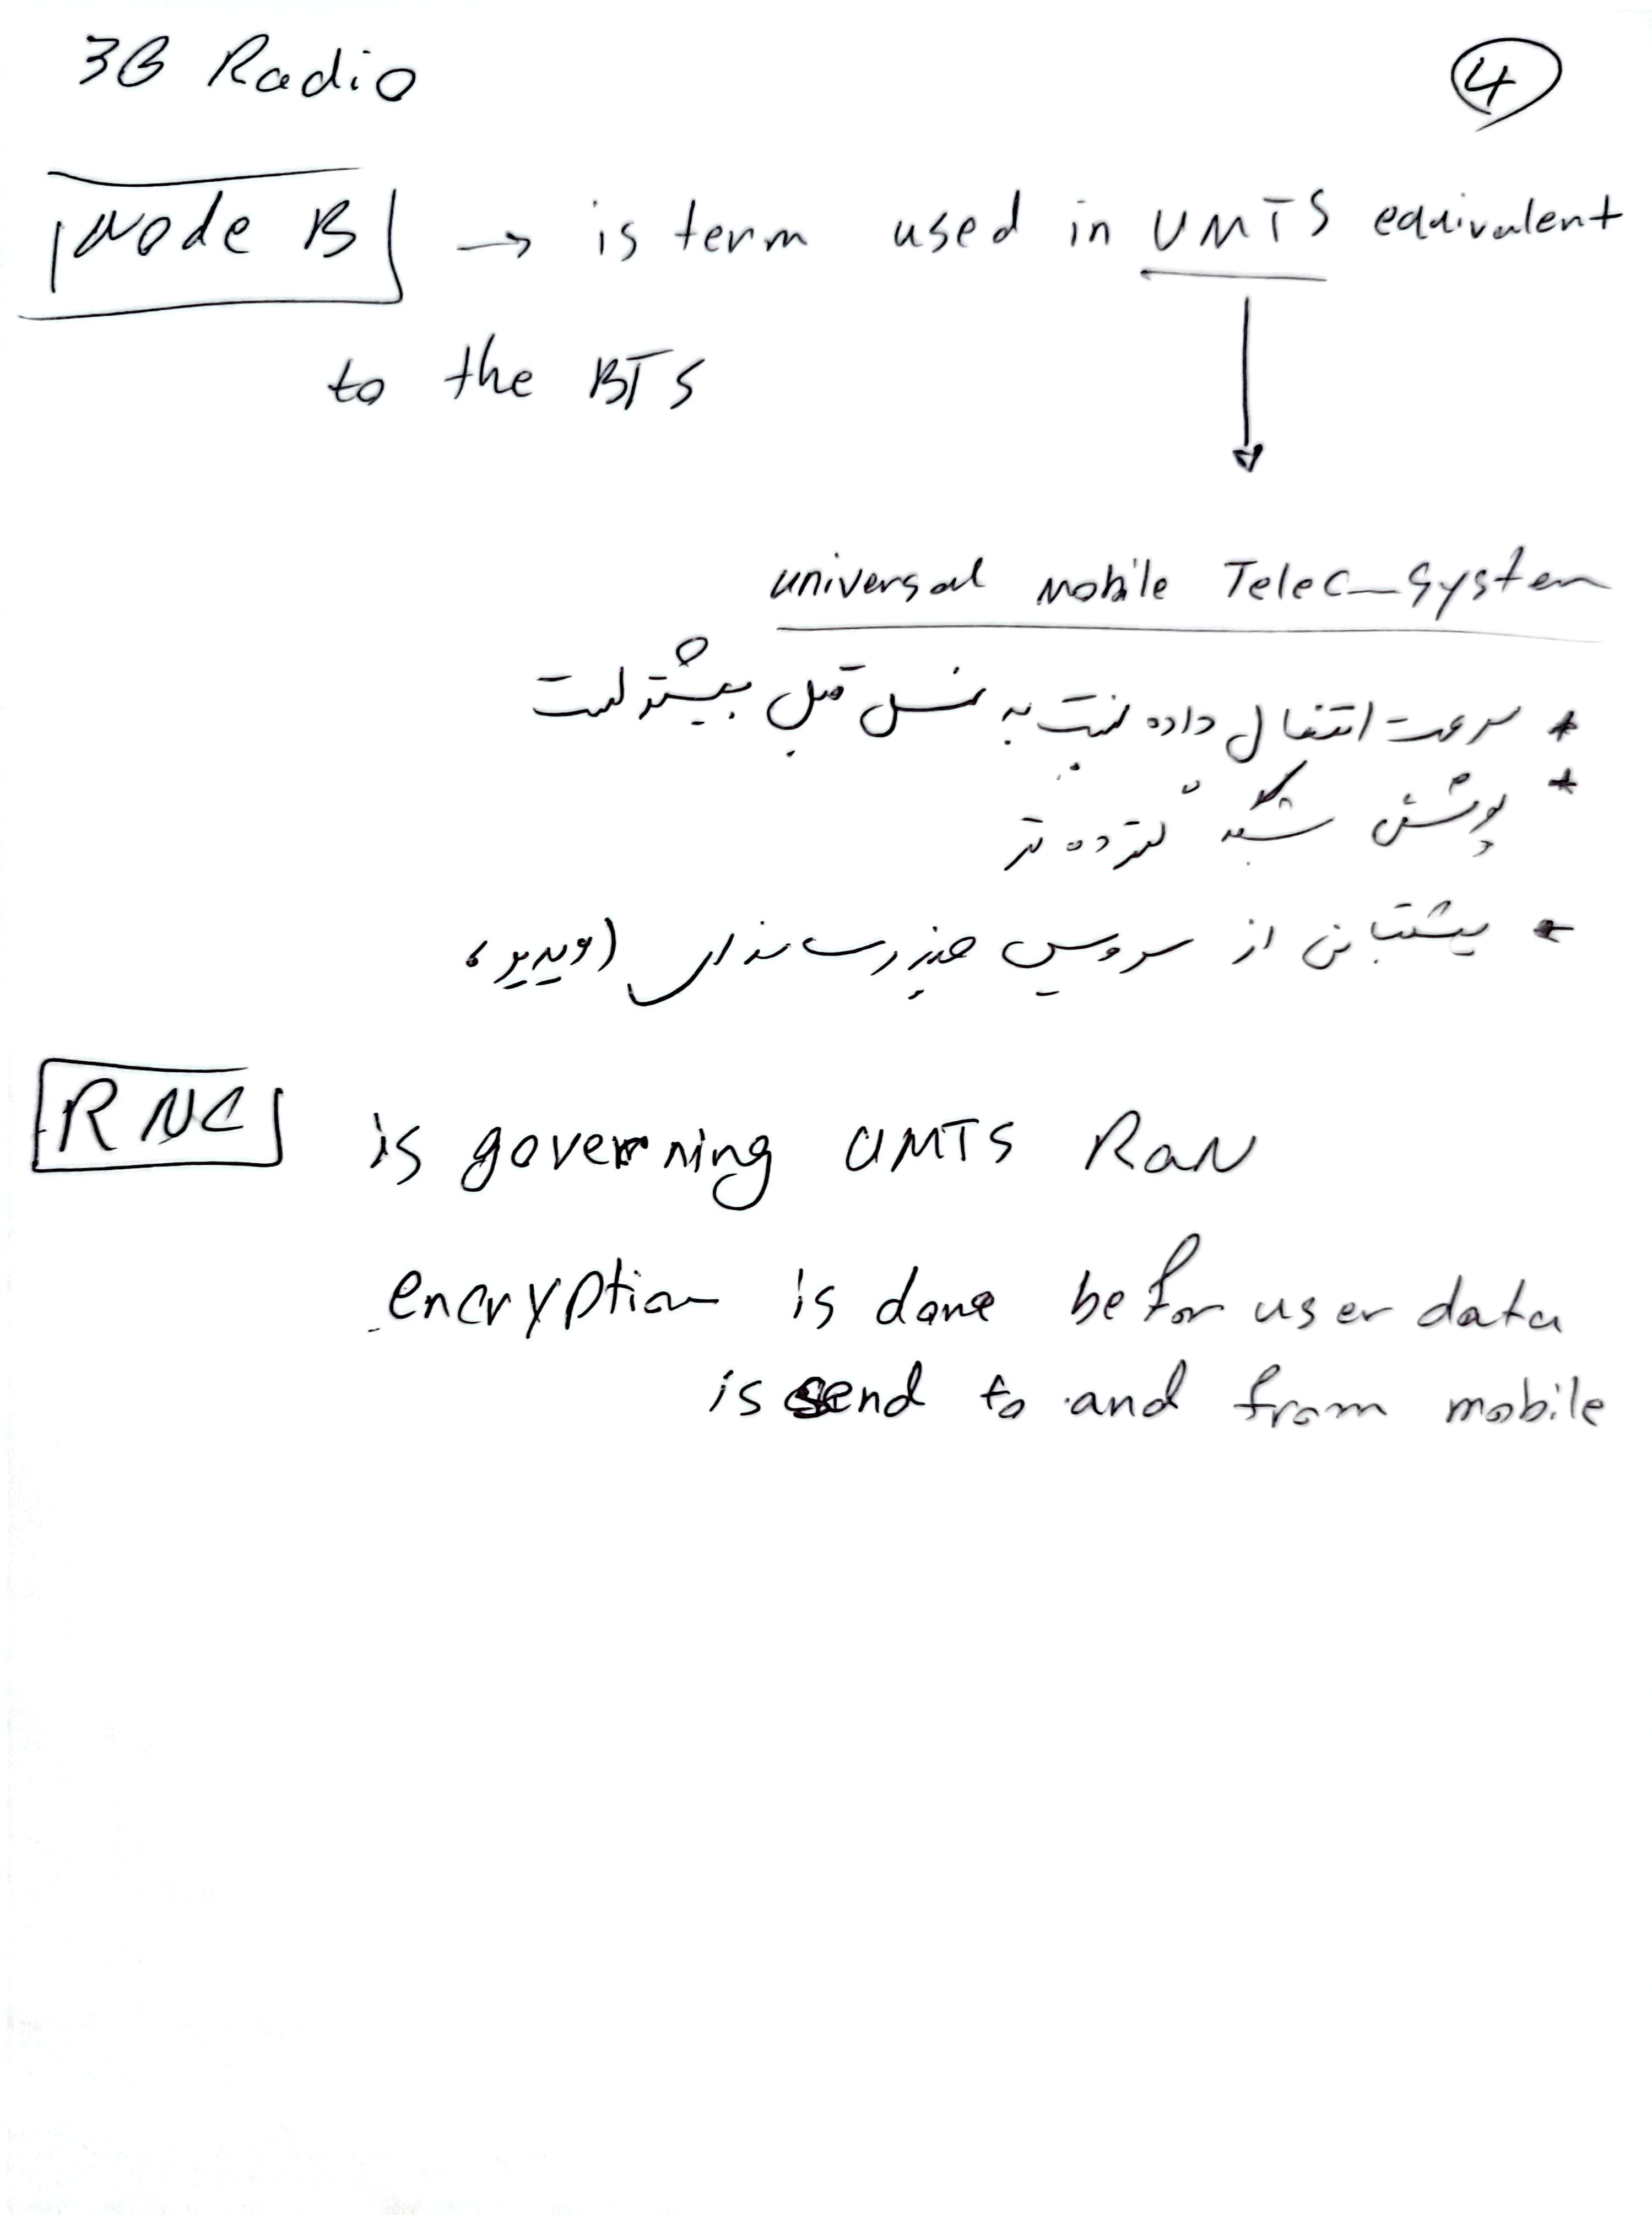 3G Radio
4
Node B → is term used in UMTS equivalent
to the BTS
universal mobile Telec_System
* سرعت انتقال داده نسبت به نسل قبل بیشتر است
* پوشش شبکه گسترده تر
* پشتیبانی از سرویس چندرسانه‌ای (ویدیو،
RNC is governing UMTS RaN
encryption is done befor user data
is send to and from mobile